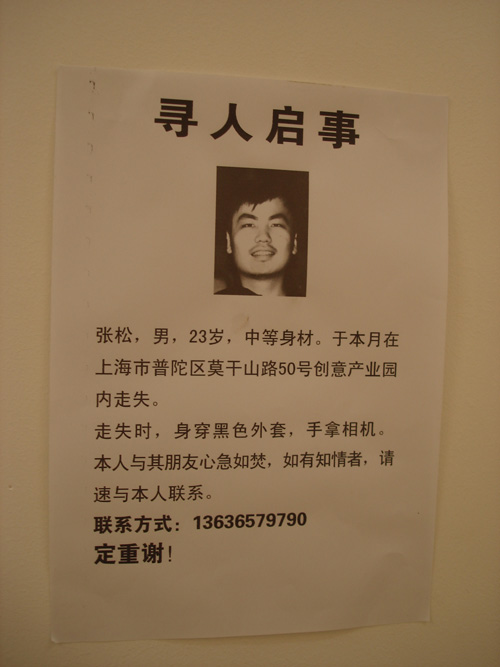 寻人启事
张松，男，23岁，中等身材。于本月在
上海市普陀区莫干山路50号创意产业园
内走失。
走失时，身穿黑色外套，手拿相机。
本人与其朋友心急如焚，如有知情者，请
速与本人联系。
联系方式：13636579790
定重谢！